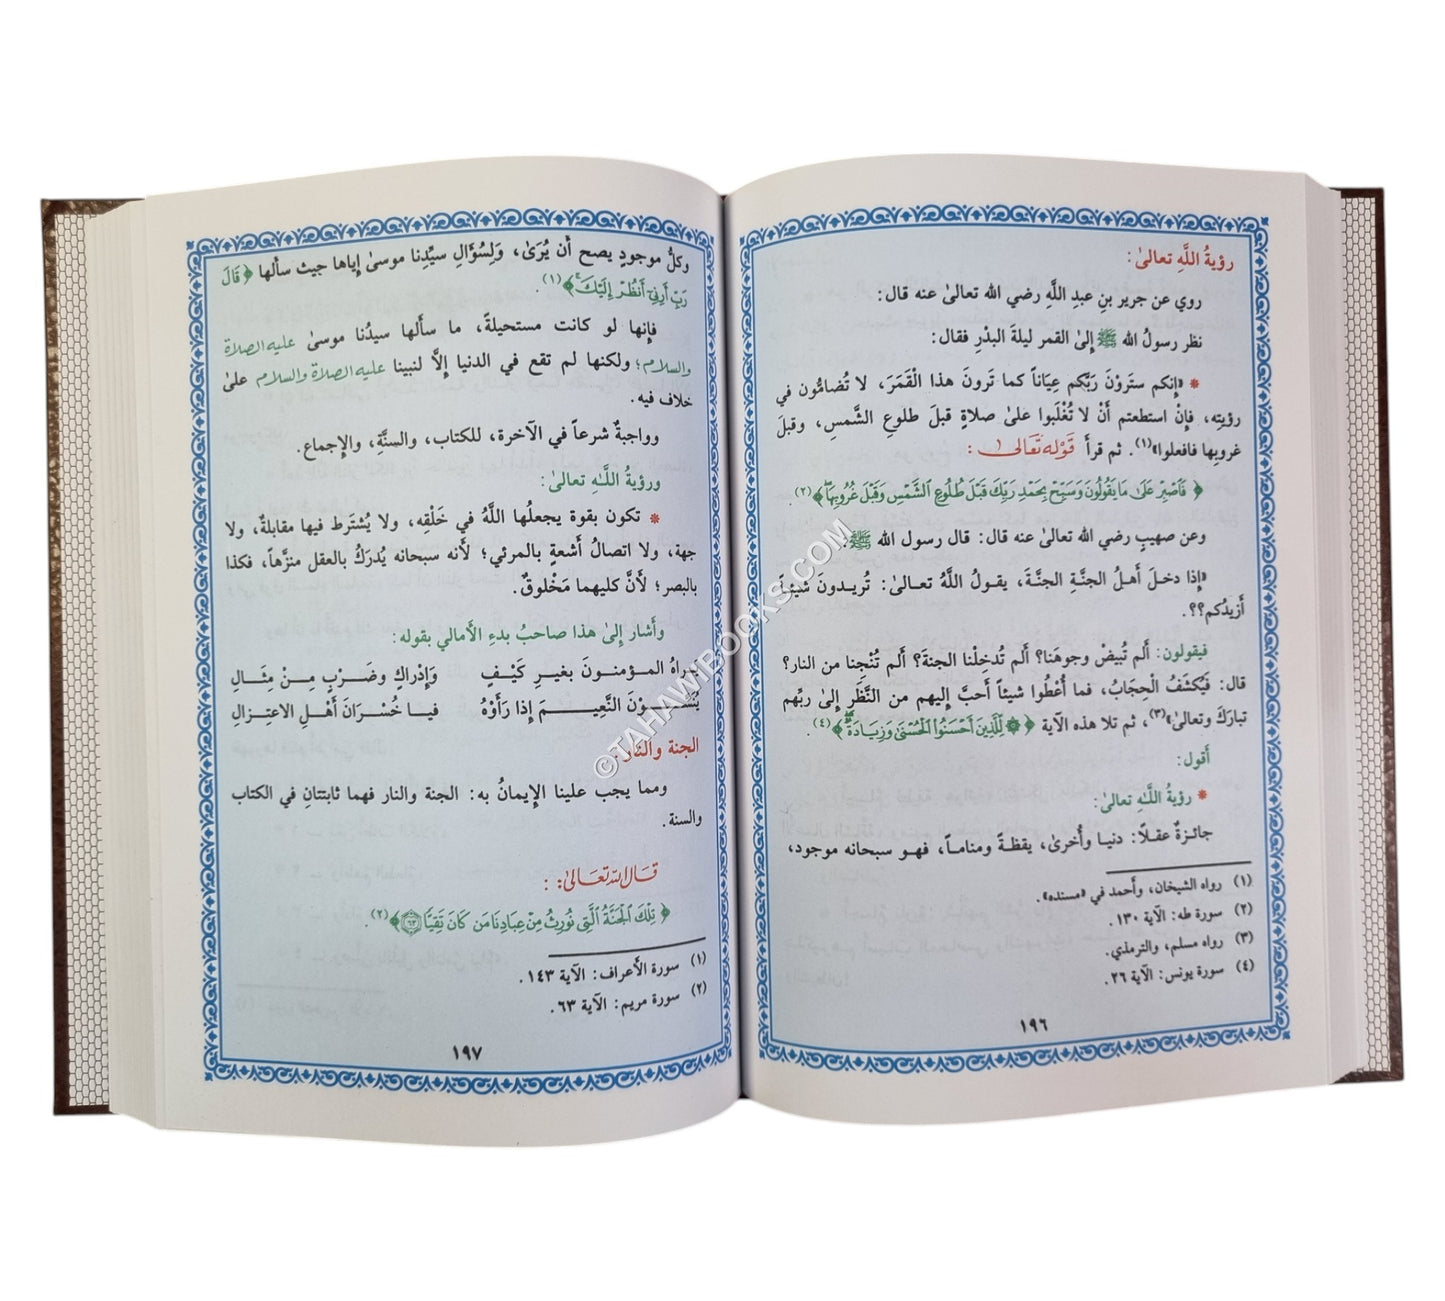 رؤيةُ اللَّهِ تعالىٰ:
روي عن جرير بنِ عبدِ اللَّهِ رضي الله تعالىٰ عنه قال:
نظر رسولُ الله ﷺ إلىٰ القمر ليلةَ البدْرِ فقال:
* «إنكم سترَوْنَ رَبَّكم عِيَاناً كما تَرونَ هذا القَمَرَ، لا تُضامُّون في
رؤيتِه، فإنْ استطعتم أنْ لا تُغْلَبوا علىٰ صلاةٍ قبلَ طلوعِ الشَّمسِ، وقبلَ
غروبِها فافعلوا»(١). ثم قرأ قَوْله تَعَالىٰ :
﴿ فَاصْبِرْ عَلَىٰ مَا يَقُولُونَ وَسَبِّحْ بِحَمْدِ رَبِّكَ قَبْلَ طُلُوعِ الشَّمْسِ وَقَبْلَ غُرُوبِهَا ﴾(٢).
وعن صهيبٍ رضي الله تعالىٰ عنه قال: قال رسول الله ﷺ:
«إذا دخلَ أهلُ الجنَّةِ الجنَّةَ، يقولُ اللَّهُ تعالىٰ: تُريدونَ شيئاً
أَزيدُكم؟؟.
فيقولون: ألم تُبيضْ وجوهَنا؟ ألم تُدخِلْنا الجنةَ؟ ألم تُنْجِنا من النار؟
قال: فَيُكشَفُ الْحِجَابُ، فما أُعْطُوا شيئاً أحبَّ إليهم من النَّظَرِ إلىٰ ربِّهم
تبارَكَ وتعالىٰ»(٣)، ثم تلا هذه الآية ﴿ ۞ لِلَّذِينَ أَحْسَنُوا الْحُسْنَىٰ وَزِيَادَةٌ ﴾(٤).
أقول:
* رؤيةُ اللَّهِ تعالىٰ:
جائزةٌ عقلاً: دنيا وأُخرىٰ، يقظةً ومناماً، فهو سبحانه موجود،
(١) رواه الشيخان، وأحمد في «مسنده».
(٢) سورة طه: الآية ١٣٠.
(٣) رواه مسلم، والترمذي.
(٤) سورة يونس: الآية ٢٦.
١٩٦
وكلُّ موجودٍ يصح أن يُرَىٰ، وَلِسُؤَالِ سيِّدِنا موسىٰ إياها حيث سألها ﴿ قَالَ
رَبِّ أَرِنِي أَنظُرْ إِلَيْكَ ﴾(١).
فإنها لو كانت مستحيلةً، ما سألها سيدُنا موسىٰ عليه الصلاة
والسلام؛ ولكنها لم تقع في الدنيا إلَّا لنبينا عليه الصلاة والسلام علىٰ
خلاف فيه.
وواجبةٌ شرعاً في الآخرة، للكتاب، والسنَّةِ، والإجماع.
ورؤيةُ اللَّهِ تعالىٰ:
* تكون بقوة يجعلُها اللَّهُ في خَلْقِه، ولا يُشتَرط فيها مقابلةٌ، ولا
جهة، ولا اتصالُ أشعةٍ بالمرئي؛ لأنه سبحانه يُدرَكُ بالعقل منزَّهاً، فكذا
بالبصر؛ لأنَّ كليهما مَخْلوقٌ.
وأشار إلىٰ هذا صاحبُ بدءِ الأمالي بقوله:
يراهُ المؤمنونَ بغيرِ كَيْفٍ وَإدْراكٍ وضَرْبٍ مِنْ مِثَالِ
يَنْسَوْنَ النَّعِيمَ إذا رَأَوْهُ فيا خُسْرَانَ أهْلِ الاعتِزالِ
الجنة والنار:
ومما يجب علينا الإيمانُ به: الجنة والنار فهما ثابتتانِ في الكتاب
والسنة.
قَالَ اللهُ تَعَالىٰ: :
﴿ تِلْكَ الْجَنَّةُ الَّتِي نُورِثُ مِنْ عِبَادِنَا مَن كَانَ تَقِيًّا ٦٣ ﴾(٢).
(١) سورة الأعراف: الآية ١٤٣.
(٢) سورة مريم: الآية ٦٣.
١٩٧
©TAHAWIBOOKS.COM